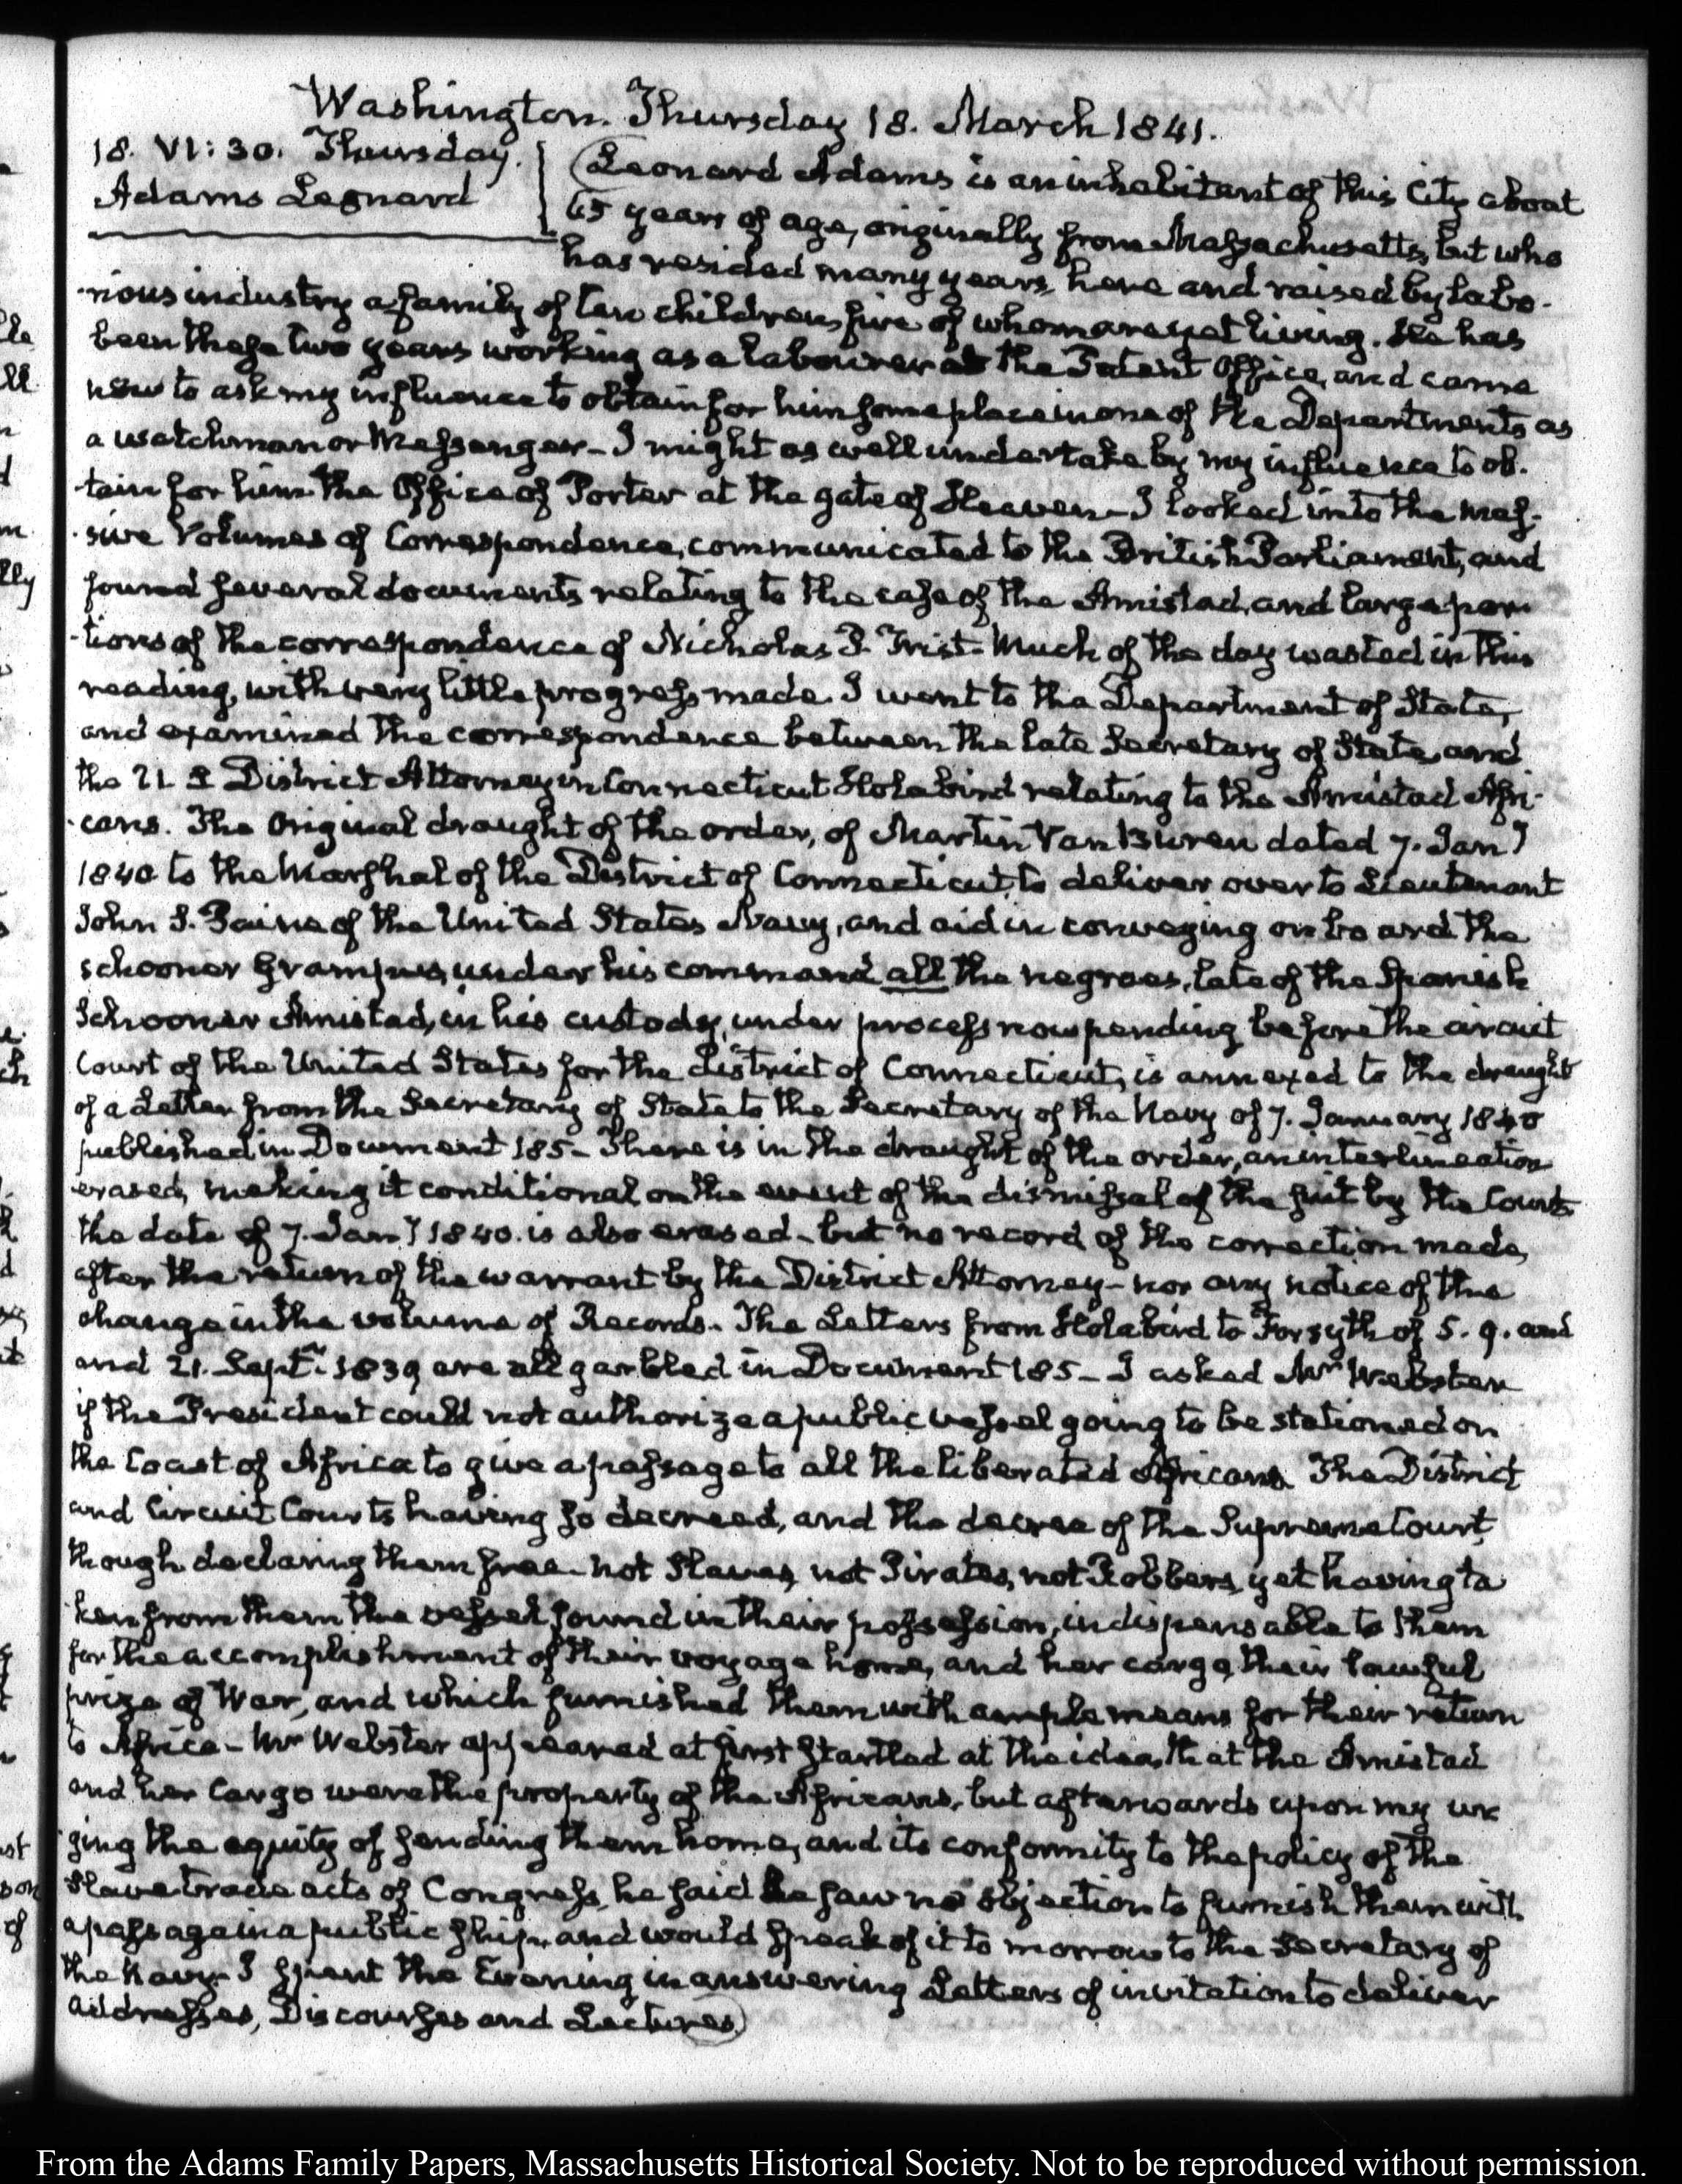 Washington. Thursday 18. March 1841.
18. VI: 30. Thursday.
Adams Leonard
Leonard Adams is an inhabitant of this City about
65 years of age, originally from Massachusetts, but who
has resided many years here and raised by labo-
-rious industry a family of ten children, five of whom are yet living. He has
been these two years working as a labourer at the Patent Office, and came
now to ask my influence to obtain for him some place in one of the Departments as
a watchman or Messenger – I might as well undertake by my influence to ob-
-tain for him the Office of Porter at the gate of Heaven – I looked into the mas-
-sive Volumes of Correspondence, communicated to the British Parliament, and
found several documents relating to the case of the Amistad, and large por-
-tions of the correspondence of Nicholas P. Trist. Much of the day wasted in this
reading, with very little progress made. I went to the Department of State,
and examined the correspondence between the late Secretary of State and
the U S District Attorney in Connecticut Holabird relating to the Amistad Afri-
-cans. The Original draught of the order, of Martin Van Buren dated 7. Jany
1840 to the Marshal of the District of Connecticut, to deliver over to Lieutenant
John S. Paine of the United States Navy, and aid in conveying on board the
schooner Grampus, under his command all the negroes, late of the Spanish
Schooner Amistad, in his custody, under process now pending before the circuit
Court of the United States for the district of Connecticut, is annexed to the draught
of a Letter from the Secretary of State to the Secretary of the Navy of 7. January 1840
published in Document 185 – There is in the draught of the order, an interlineation
erased, making it conditional on the event of the dismissal of the suit by the Court
the date of 7. Jany 1840. is also erased – but no record of the correction made,
after the return of the warrant by the District Attorney – nor any notice of the
change in the volume of Records. The Letters from Holabird to Forsyth of 5. 9. and
and 21. Septr 1839 are all garbled in Document 185 – I asked Mr Webster
if the President could not authorize a public vessel going to be stationed on
the Coast of Africa to give a passage to all the liberated Africans. The District
and Circuit Courts having so decreed, and the decree of the Supreme Court,
though declaring them free – not Slaves, not Pirates, not Robbers, yet having ta
-ken from them the vessel found in their possession, indispensable to them
for the accomplishment of their voyage home, and her cargo, their lawful
prize of War, and which furnished them with ample means for their return
to Africa – Mr Webster appeared at first startled at the idea, that the Amistad
and her Cargo were the property of the Africans, but afterwards upon my ur
-ging the equity of sending them home, and its conformity to the policy of the
Slave trade acts of Congress, he said he saw no objection to furnish them with
a passage in a public ship, and would speak of it to morrow to the Secretary of
the Navy. I spent the Evening in answering Letters of invitation to deliver
Addresses, Discourses and Lectures.
From the Adams Family Papers, Massachusetts Historical Society. Not to be reproduced without permission.